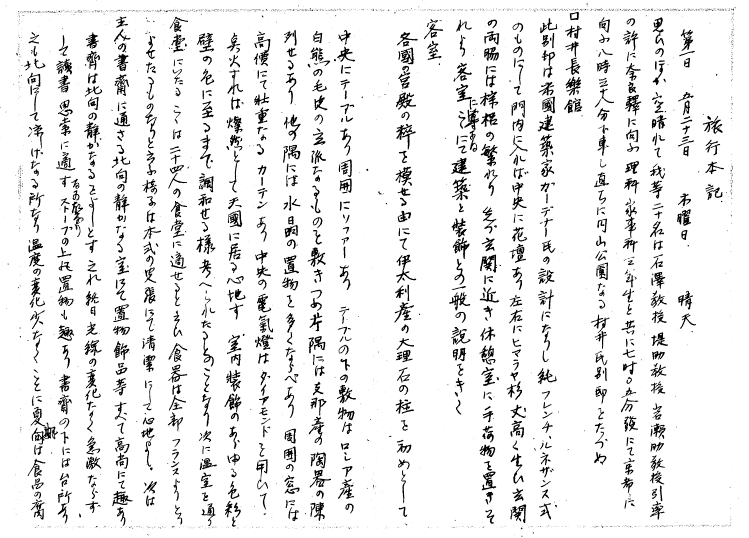 旅行本記
第一日 五月二十三日 木曜日 晴天
思ひの外 空晴れて我等二十名は石澤教授 堤助教授 岩瀬助教授引率
の許に奈良驛に向ふ 理科家事科三年生と共に七時〇五分發にて京都に
向ふ八時三十八分下車し直ちに円山公園なる村井氏別邸をたづぬ
□村井長樂館
此別邸は米國建築家ガーデナー氏の設計になりし純フレンチルネザンス式
のものにして門内に入れば中央に花壇あり左右にヒマラヤ杉丈高く生ひ玄関
の両脇には棕梠の繁れり 先づ玄関に近き休憩室に手荷物を置きそ
れより客室に導かれここにて建築と装飾との一般の説明をきく
客室
各國の宮殿の粋を模せる由にて伊太利産の大理石の柱を初めとして
中央にテーブルあり周囲にソファーあり テーブルの下の敷物はロシア産の
白熊の毛皮の立派なるものを敷きつめ片隅には支那産の陶器の陳
列せるあり 他の隅には水晶の置物を多くならべあり 周囲の窓には
高價にて壮重なるカーテンあり中央の電氣燈はダイアモンドを用ひて
点火すれば燦然として天國に居る心地す 室内装飾のあらゆる色彩と
壁の色に至るまで調和せる様考へられたるとのことなり次に温室を通り
食堂にいたる ここは二十四人の食堂に適せるといふ 食器は全部フランスよりとり
よせたるものなりと云ふ椅子は本式の史張にて清潔にして心地よし 次は
主人の書齋に通さる北向の静かなる室にて置物飾品等すべて高尚にて趣あり
書齋は北向の静かなるをよしとす これ終日光線の変化なく急激ならず
して讀書 思索に適す ストーブの上の右の置物も趣あり 書齋の下には台所あり
之も北向にして涼しげなる所なり 温度の変化少なくことに夏期は食品の腐